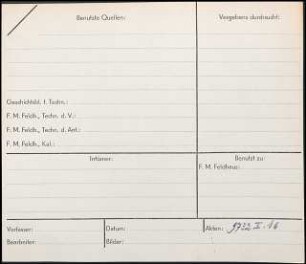 Benutzte Quellen:
Vergebens durchsucht:
Geschichtsbl. f. Techn.:
F. M. Feldh., Techn. d. V.:
F. M. Feldh., Techn. d. Ant.:
F. M. Feldh., Kal.:
Irrtümer:
Benutzt zu:
F. M. Feldhaus:
Verfasser:
Datum:
Akten:
Bearbeiter:
Bilder: